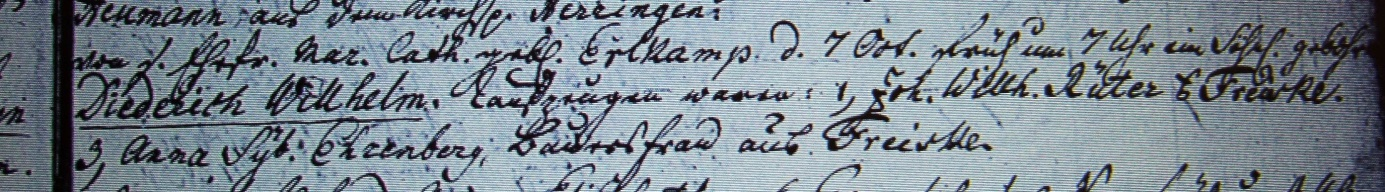 Neumann aus dem Kirchsp. Herringen.
von s. Ehefr. Mar. Cath. gebh. Erlkamp d. 7 Oct. früh um 7 Uhr ein Sohn gebohren
Diederich Willhelm. Taufzeugen waren: 1, Joh. Wilh. Rüter
3, Anna Sÿb: Ehrenberg, Bauersfrau aus Freiske.